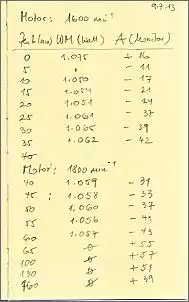 9.7.13
Motor: 1600 min⁻¹
Zeit (min) WM (Watt) A (Monitor)
0 1.075 + 16
5 " - 11
10 1.050 - 17
15 1.054 - 21
20 1.051 - 24
25 1.061 - 37
30 1.065 - 39
35 1.062 - 42
40
Motor: 1800 min⁻¹
40 1.059 - 31
45 : 1.058 - 33
50 1.060 - 37
55 1.056 - 41
60 1.057 - 43
65 ∅ + 55
100 ∅ + 57
130 ∅ + 51
160 ∅ + 39